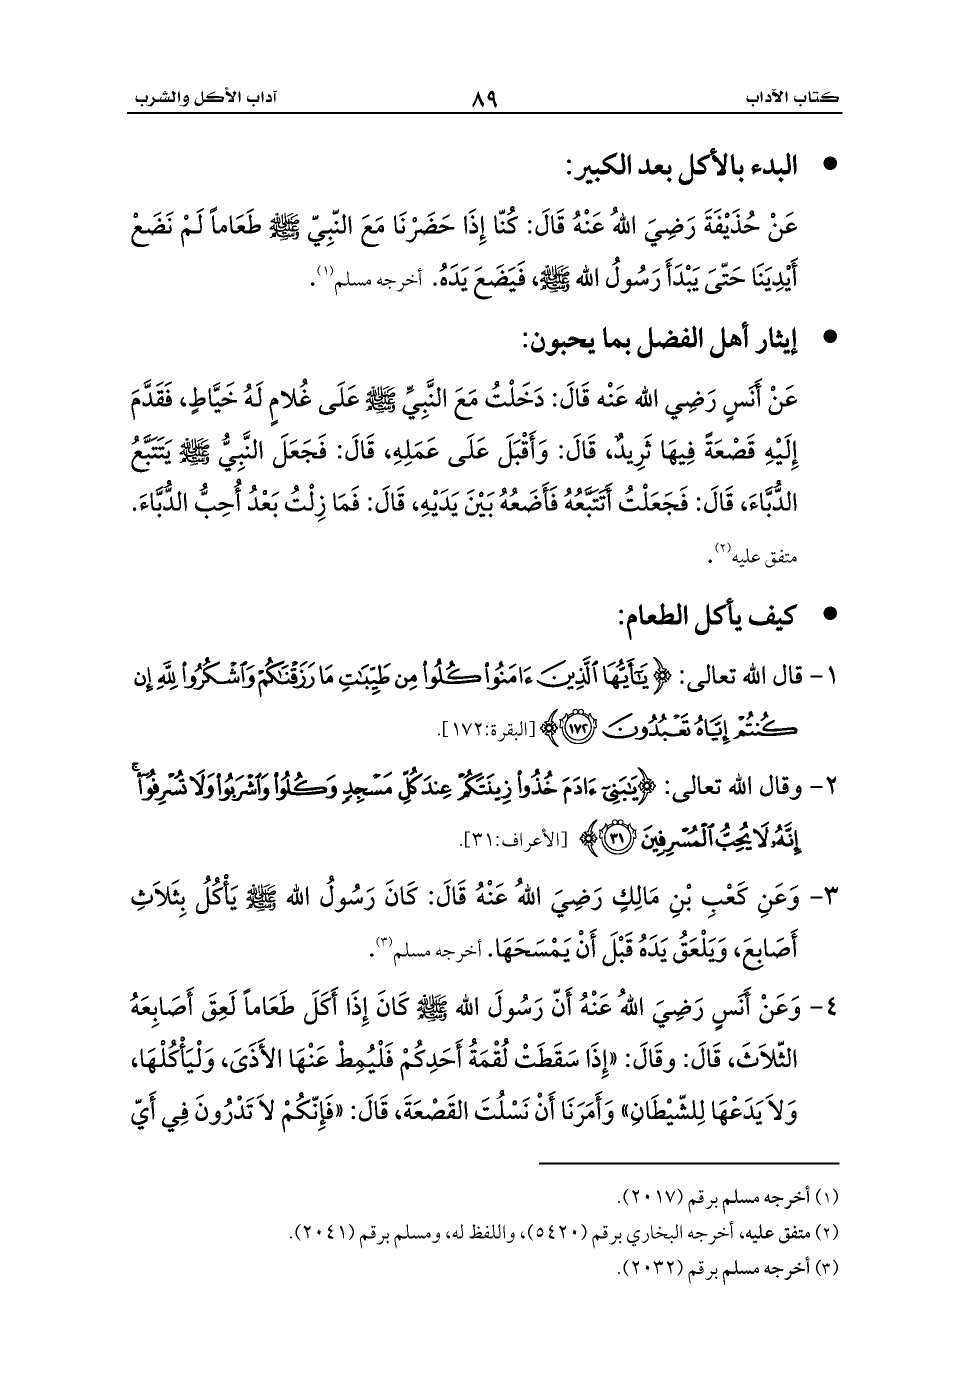 كتاب الآداب ٨٩ آداب الأكل والشرب
● البدء بالأكل بعد الكبير:
عَنْ حُذَيْفَةَ رَضِيَ اللهُ عَنْهُ قَالَ: كُنّا إِذَا حَضَرْنَا مَعَ النّبِيّ ﷺ طَعَاماً لَمْ نَضَعْ
أَيْدِيَنَا حَتّىَ يَبْدَأَ رَسُولُ الله ﷺ، فَيَضَعَ يَدَهُ. أخرجه مسلم(١).
● إيثار أهل الفضل بما يحبون:
عَنْ أَنَسٍ رَضِي الله عَنْه قَالَ: دَخَلْتُ مَعَ النَّبِيِّ ﷺ عَلَى غُلامٍ لَهُ خَيَّاطٍ، فَقَدَّمَ
إِلَيْهِ قَصْعَةً فِيهَا ثَرِيدٌ، قَالَ: وَأَقْبَلَ عَلَى عَمَلِهِ، قَالَ: فَجَعَلَ النَّبِيُّ ﷺ يَتَتَبَّعُ
الدُّبَّاءَ، قَالَ: فَجَعَلْتُ أَتَتَبَّعُهُ فَأَضَعُهُ بَيْنَ يَدَيْهِ، قَالَ: فَمَا زِلْتُ بَعْدُ أُحِبُّ الدُّبَّاءَ.
متفق عليه(٢).
● كيف يأكل الطعام:
١- قال الله تعالى: ﴿يَٰٓأَيُّهَا ٱلَّذِينَ ءَامَنُوا۟ كُلُوا۟ مِن طَيِّبَٰتِ مَا رَزَقْنَٰكُمْ وَٱشْكُرُوا۟ لِلَّهِ إِن
كُنتُمْ إِيَّاهُ تَعْبُدُونَ ١٧٢﴾ [البقرة:١٧٢].
٢- وقال الله تعالى: ﴿يَٰبَنِىٓ ءَادَمَ خُذُوا۟ زِينَتَكُمْ عِندَ كُلِّ مَسْجِدٍ وَكُلُوا۟ وَٱشْرَبُوا۟ وَلَا تُسْرِفُوٓا۟ ۚ
إِنَّهُۥ لَا يُحِبُّ ٱلْمُسْرِفِينَ ٣١﴾ [الأعراف:٣١].
٣- وَعَنِ كَعْبِ بْنِ مَالِكٍ رَضِيَ اللهُ عَنْهُ قَالَ: كَانَ رَسُولُ الله ﷺ يَأْكُلُ بِثَلاَثِ
أَصَابِعَ، وَيَلْعَقُ يَدَهُ قَبْلَ أَنْ يَمْسَحَهَا. أخرجه مسلم(٣).
٤- وَعَنْ أَنَسٍ رَضِيَ اللهُ عَنْهُ أَنّ رَسُولَ الله ﷺ كَانَ إِذَا أَكَلَ طَعَاماً لَعِقَ أَصَابِعَهُ
الثّلاَثَ، قَالَ: وقَالَ: «إِذَا سَقَطَتْ لُقْمَةُ أَحَدِكُمْ فَلْيُمِطْ عَنْهَا الأَذَىَ، وَلْيَأْكُلْهَا،
وَلاَ يَدَعْهَا لِلشّيْطَانِ» وَأَمَرَنَا أَنْ نَسْلُتَ القَصْعَةَ، قَالَ: «فَإِنّكُمْ لاَ تَدْرُونَ فِي أَيّ
(١) أخرجه مسلم برقم (٢٠١٧).
(٢) متفق عليه، أخرجه البخاري برقم (٥٤٢٠)، واللفظ له، ومسلم برقم (٢٠٤١).
(٣) أخرجه مسلم برقم (٢٠٣٢).